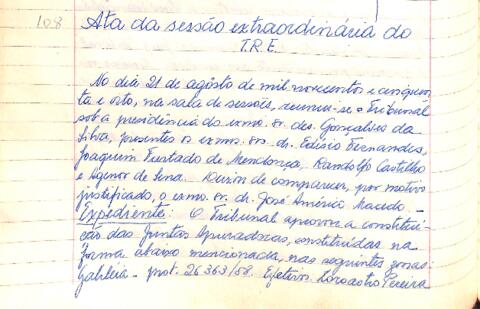 108
Ata da sessão extraordinária do
T.R.E.
No dia 21 de agôsto de mil novecentos e cinquen-
ta e oito, na sala de sessões, reuniu-se o Tribunal
sob a presidência do exmo. sr. des. Gonçalves da
Silva, presentes os exmos. srs. dr. Edésio Fernandes,
Joaquim Furtado de Mendonça, Randolfo Castilho
e Agenor de Sena. Deixou de comparecer, por motivo
justificado, o exmo. sr. dr. José Américo Macedo —
Expediente: O Tribunal aprovou a constitui-
ção das Juntas Apuradoras, constituídas na
forma abaixo mencionada, nas seguintes zonas:
Galiléia - prot. 26363/58. Efetivos Pereira